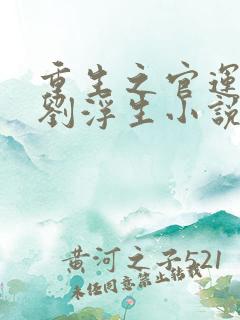 重生之官運
劉浮生小說
黄河之子521
未经同意禁止转载